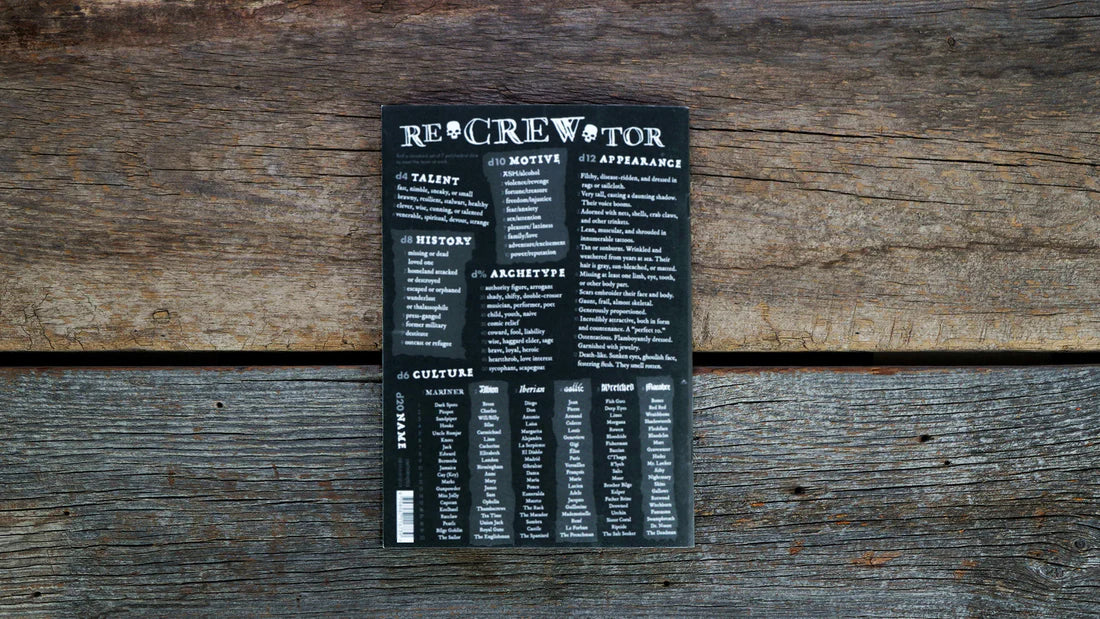 RE CREW TOR
d4 TALENT
fast, nimble, sneaky, or small
brawny, resilient, stalwart, healthy
clever, wise, cunning, or talented
venerable, spiritual, devout, strange
d10 MOTIVE
ASH/alcohol
violence/revenge
fortune/treasure
freedom/injustice
fear/anxiety
sex/attention
pleasure/ laziness
family/love
adventure/excitement
power/reputation
d12 APPEARANCE
Filthy, disease-ridden, and dressed in
rags or sailcloth.
Very tall, casting a daunting shadow.
Their voice booms.
Adorned with nets, shells, crab claws,
and other trinkets.
Lean, muscular, and shrouded in
innumerable tattoos.
Tan or sunborns. Wrinkled and
weathered from years at sea. Their
hair is grey, sun-bleached, or matted.
Missing at least one limb, eye, tooth,
or other body part.
Scars embroider their face and body.
Gaunt, frail, almost skeletal.
Generously proportioned.
Incredibly attractive, both in form
and countenance. A "perfect 10."
Ostentatious. Flamboyantly dressed.
Garnished with jewelry.
Death-like. Sunken eyes, ghoulish face,
festering flesh. They smell rotten.
d8 HISTORY
missing or dead
loved one
homeland attacked
or destroyed
escaped or orphaned
wanderlust
or thalassophile
press-ganged
former military
destitute
outcast or refugee
d% ARCHETYPE
authority figure, arrogant
shady, shifty, double-crosser
musician, performer, poet
child, youth, naive
comic relief
coward, fool, liability
wise, haggard elder, sage
brave, loyal, heroic
heartthrob, love interest
sycophant, scapegoat
d6 CULTURE
d20 NAME
MARINER
Dark Spots
Piropet
Sandpiper
Hooks
Uncle Rumjar
Knots
Jack
Edward
Bermuda
Jamaica
Cay (Key)
Marks
Gunpowder
Miss Jolly
Capstan
Keelhaul
Ratclaw
Pearls
Bilge Goldin
The Sailor
Albion
Bron
Charles
Will/Billy
Silas
Carmichael
Linus
Catherine
Elizabeth
London
Birmingham
Anne
Mary
James
Sam
Ophelia
Thumbscrews
Tea Time
Union Jack
Royal Guns
The Englishman
Iberian
Diego
Don
Antonio
Luisa
Margarita
Alejandra
La Serpiente
El Diablo
Madrid
Gibraltar
Dama
Maria
Ponce
Esmeralda
Muerto
The Rack
The Matador
Sombra
Castile
The Spaniard
Gallic
Jean
Pierre
Armand
Celeste
Louis
Genevieve
Gigi
Élise
Paris
Versailles
François
Marie
Lucien
Adele
Jacques
Guillaume
Mademoiselle
René
Le Forban
The Frenchman
Wretched
Fish Guts
Deep Eyes
Limes
Morgana
Rowen
Bloodtide
Fisherman
Bastian
C'Thagn
R'lyeh
Salts
Moor
Brother Bilge
Kelper
Father Brine
Drowned
Urchin
Sister Coral
Riptide
The Salt Seeker
Macabre
Bones
Red Rod
Wraithbone
Shadowteeth
Fleshface
Bloodskin
Mort
Gravesmeer
Hades
Mr. Locker
Ashy
Nightmary
Skins
Gallows
Rottwood
Witchburn
Fantasma
Swampbreath
Dr. Noose
The Deadman